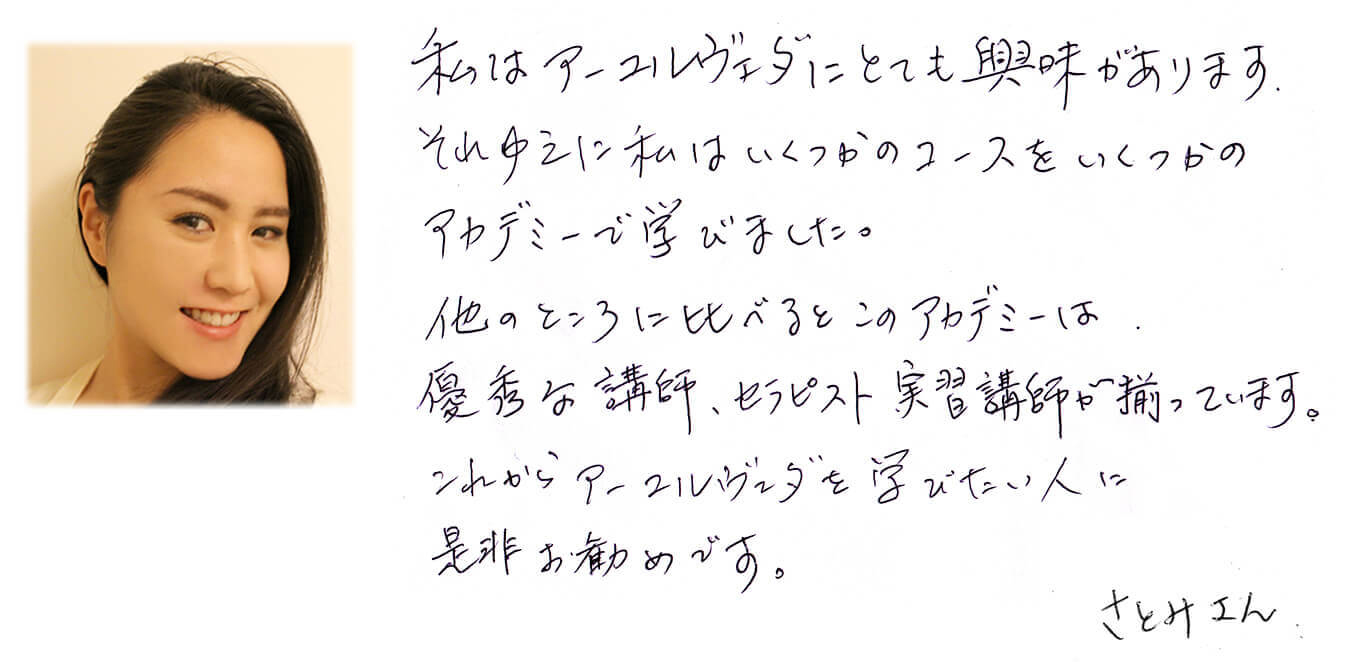 私はアーユルヴェダにとても興味があります.
それゆえに私はいくつかのコースをいくつかの
アカデミーで学びました。
他のところに比べるとこのアカデミーは.
優秀な講師、セラピスト実習講師が揃っています。
これからアーユルヴェダを学びたい人に
是非お勧めです。
さとみエん.